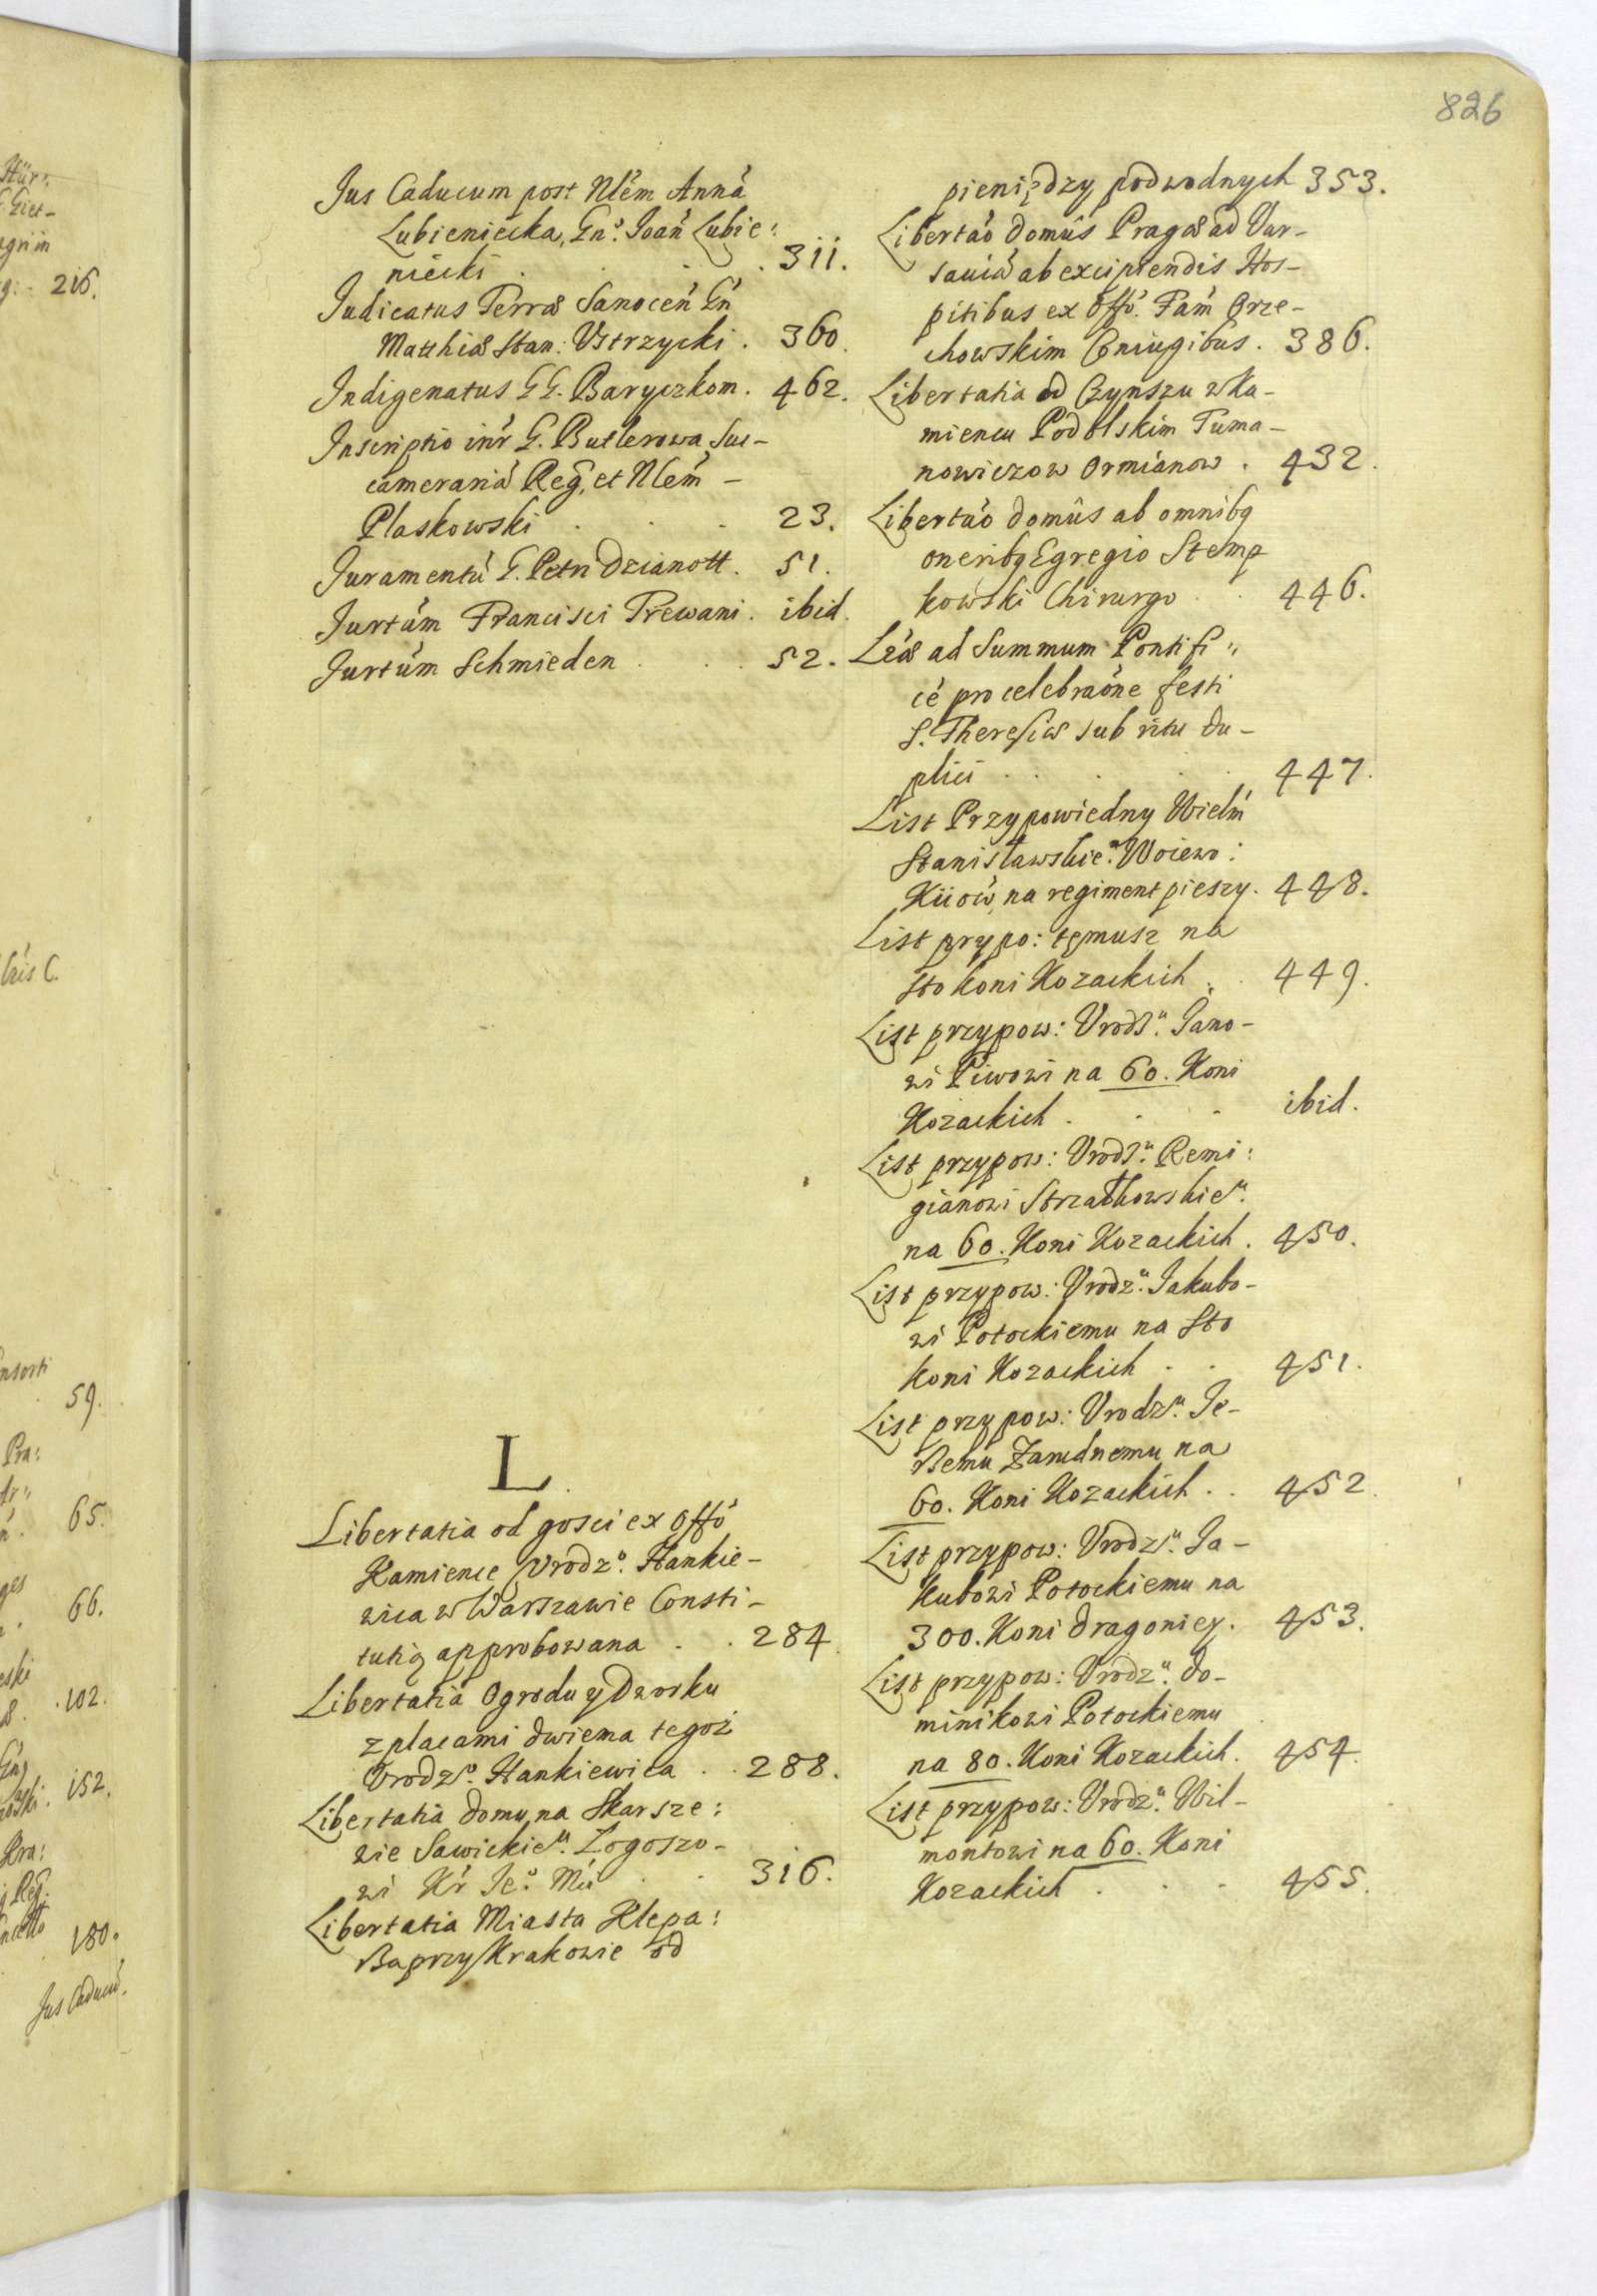 826
Jus Caducum post Nlem Anná
Lubieniecka, Gn̊. Joan Lubie:
niecki . . . 311.
Judicatus Terræ Sanoceń Gń
Matthiæ Stan: Ustrzycki . 360.
Indigenatus GG. Baryczkom . 462.
Inscriptio inr̃ G. Butlerowa Suc-
cameraria Reg, et Nlem -
Plaskowski . . . 23.
Juramentú G. Petri Dzianott . 51.
Jurtúm Francisci Trewani . ibid.
Jurtúm Schmieden . . . 52.
L.
Libertatia od gosci ex Offo
Kamience Vrodzo. Hankie-
wica w Warszawie Consti-
tutią approbowana . . 284.
Libertatia Ogrodu y Dworku
z placami dwiema tegoż
Vrodzo. Hankiewica . . 288.
Libertatia domu na Skarsze:
wie Sawickieu. Zogoszo-
wi Kr Jeo. Mú . . 316.
Libertatia Miasta Klepa:
Ba przy Krakowie od
pieniędzy podwodnych 353.
Libertáo domûs Pragæ ad Var-
saviá ab excipiendis Hos-
pitibus ex Offó. Fám Orze-
chowskim Coniugibus . 386.
Libertatia od Czynszu w Ka-
miencu Podolskim Tuma-
nowiczow Ormianow . 432.
Libertáo domûs ab omnibq
oneribq Egregio Stemp
kowski Chirurgo . . 446.
Lr̃æ ad Summum Pontifi:,
cé pro celebraóne festi
S. Theresiæ sub ritu du-
plici . . . 447.
List Przypowiedny Wielm
Stanisławskieu. Woiewo:
Kiiow, na regiment pieszy. 448.
List przypo: temusz na
sto koni Kozackich . . 449.
List przypow: Vrodzu. Jano-
wi Piwowi na 60. Koni
Kozackich . . . ibid.
List przypow: Vrodzu. Remi:
gianowi Strzałkowskieu.
na 60. Koni Kozackich . 450.
List przypow: Vrodzu. Jakubo-
wi Potockiemu na Sto
koni Kozackich . . 451.
List przypow: Vrodzu. Je-
remu Zarudnemu na
60. Koni Kozackich . . 452.
List przypow: Vrodzu. Ja-
kubowi Potockiemu na
300. Koni dragoniey . 453.
List przypow: Vrodzu. Do-
minikowi Potockiemu
na 80. Koni Kozackich . 454.
List przypow: Vrodzu. Wil-
montowi na 60. Koni
Kozackich . . . 455.